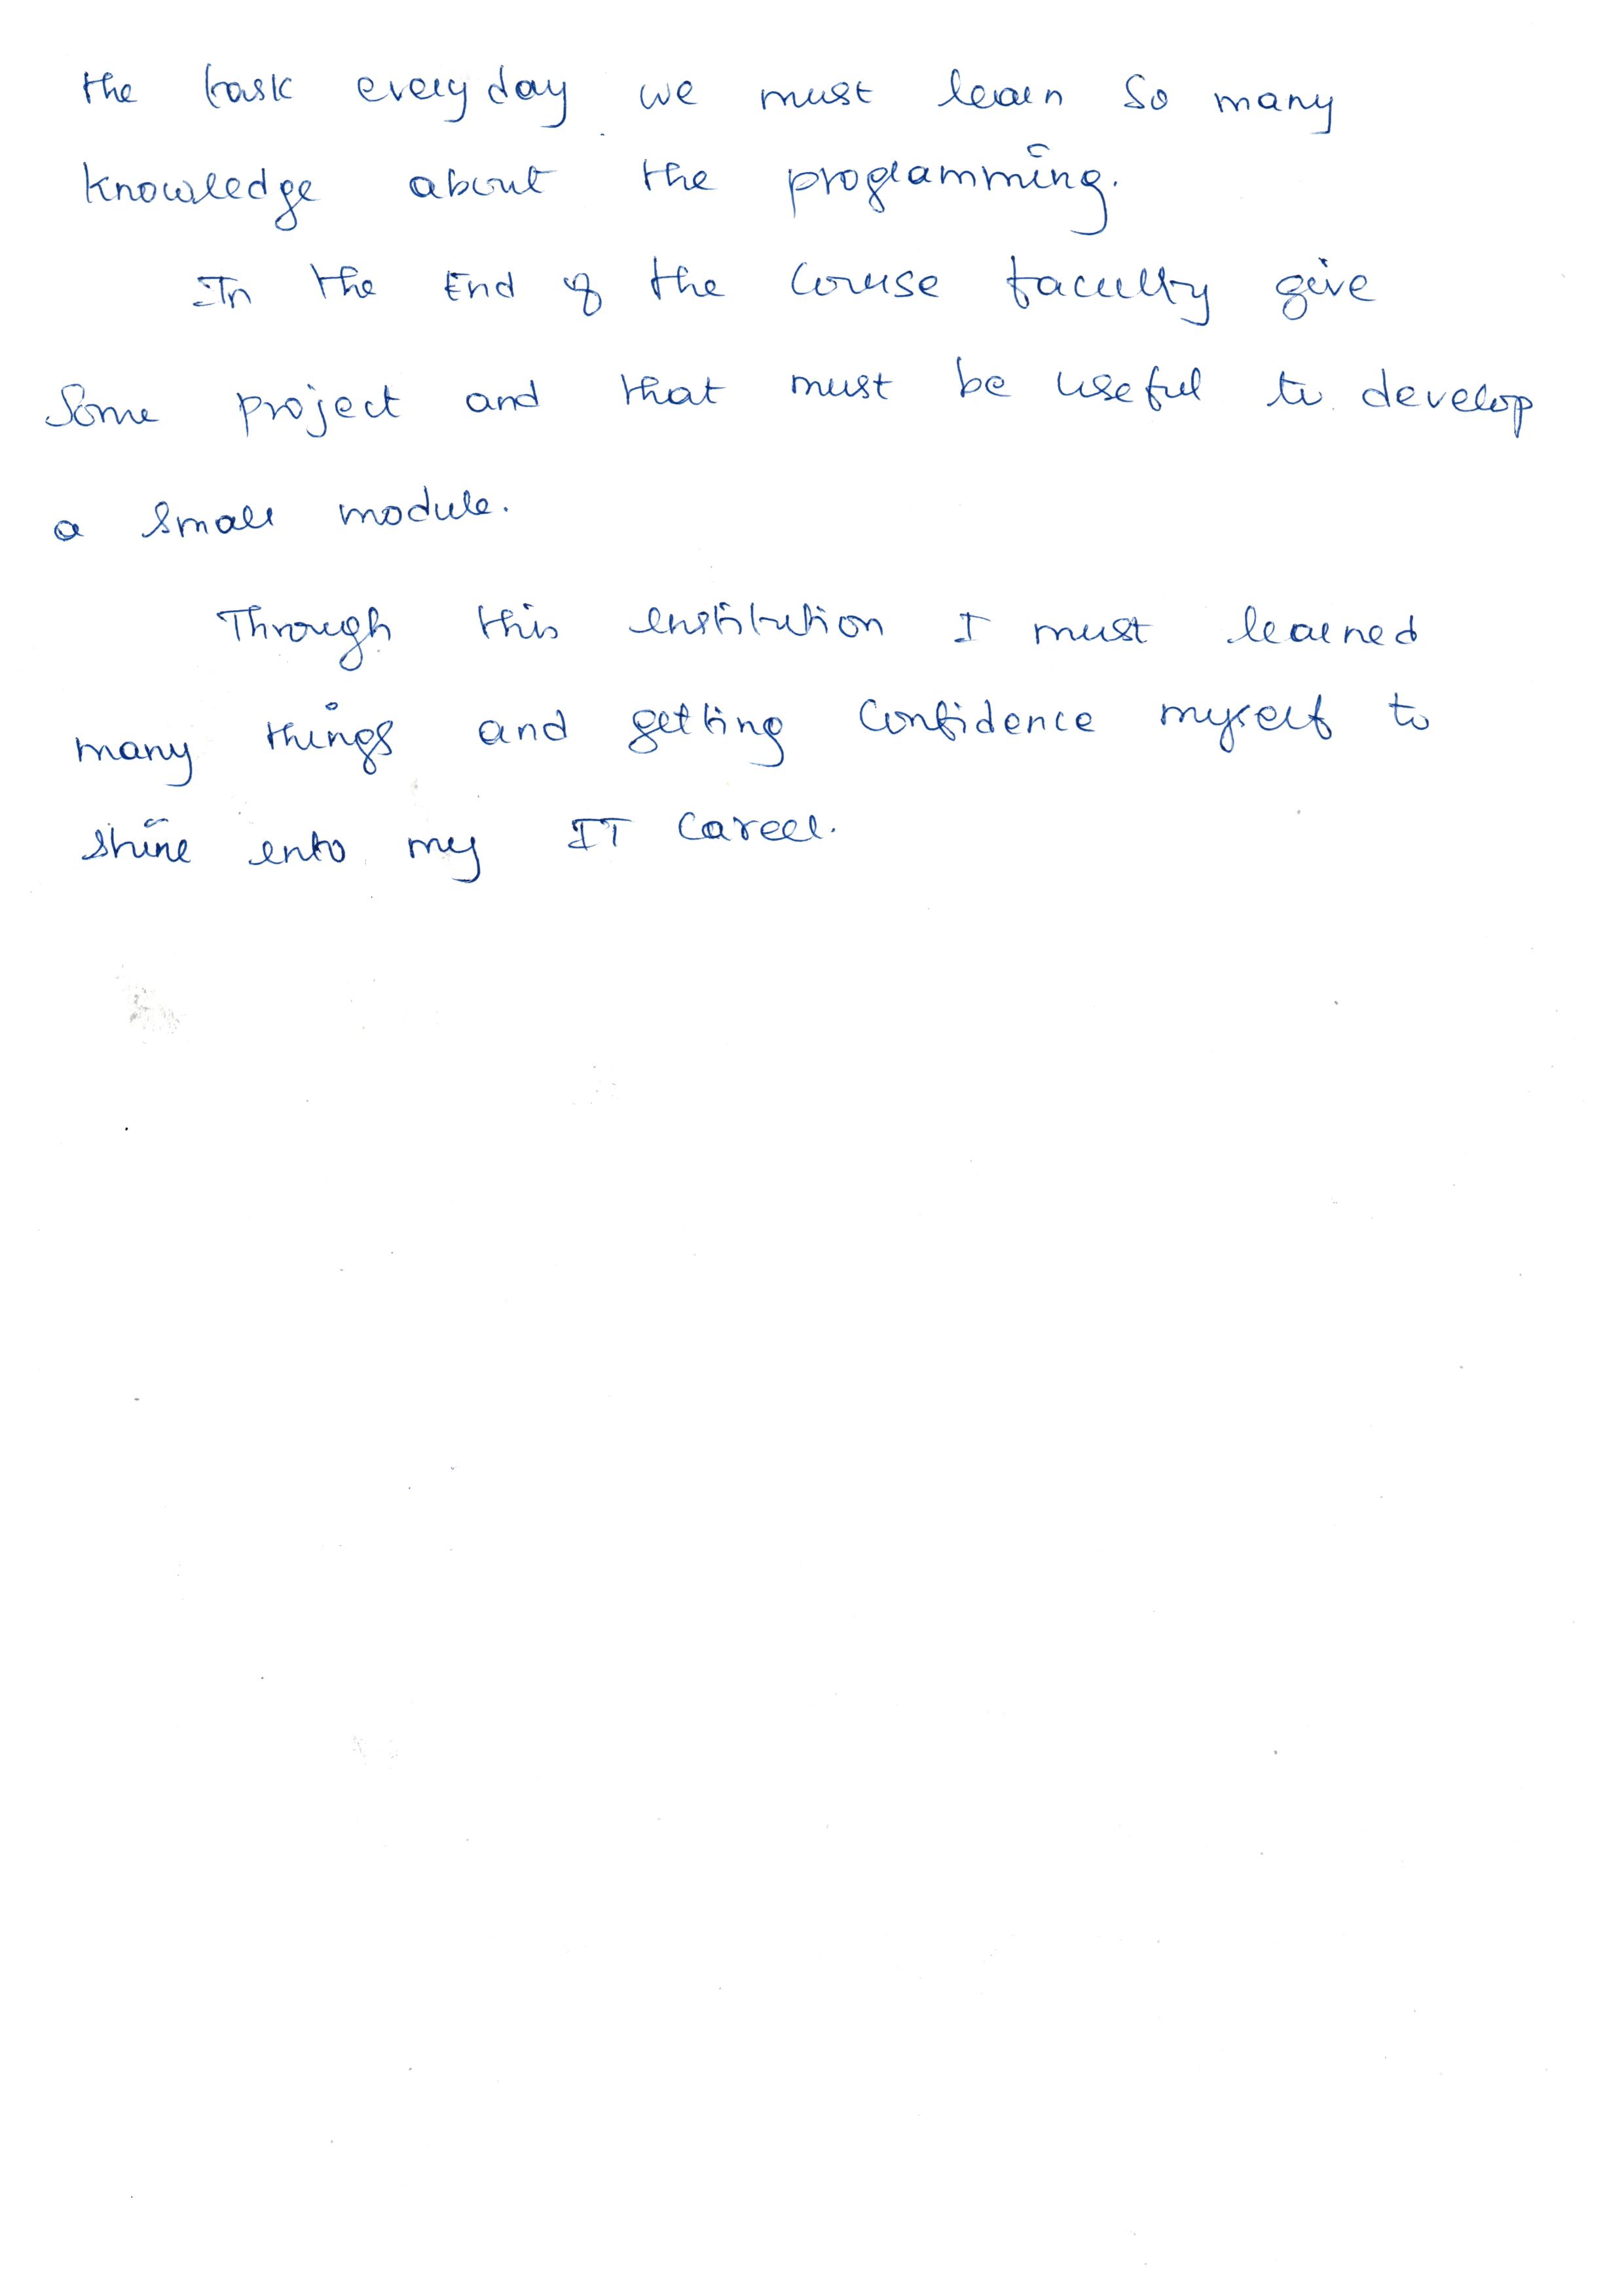 the task everyday we must learn So many
knowledge about the programming.
In the End of the Course faculty give
Some project and that must be useful to develop
a small module.
Through this institution I must learned
many things and getting Confidence myself to
shine into my IT Career.